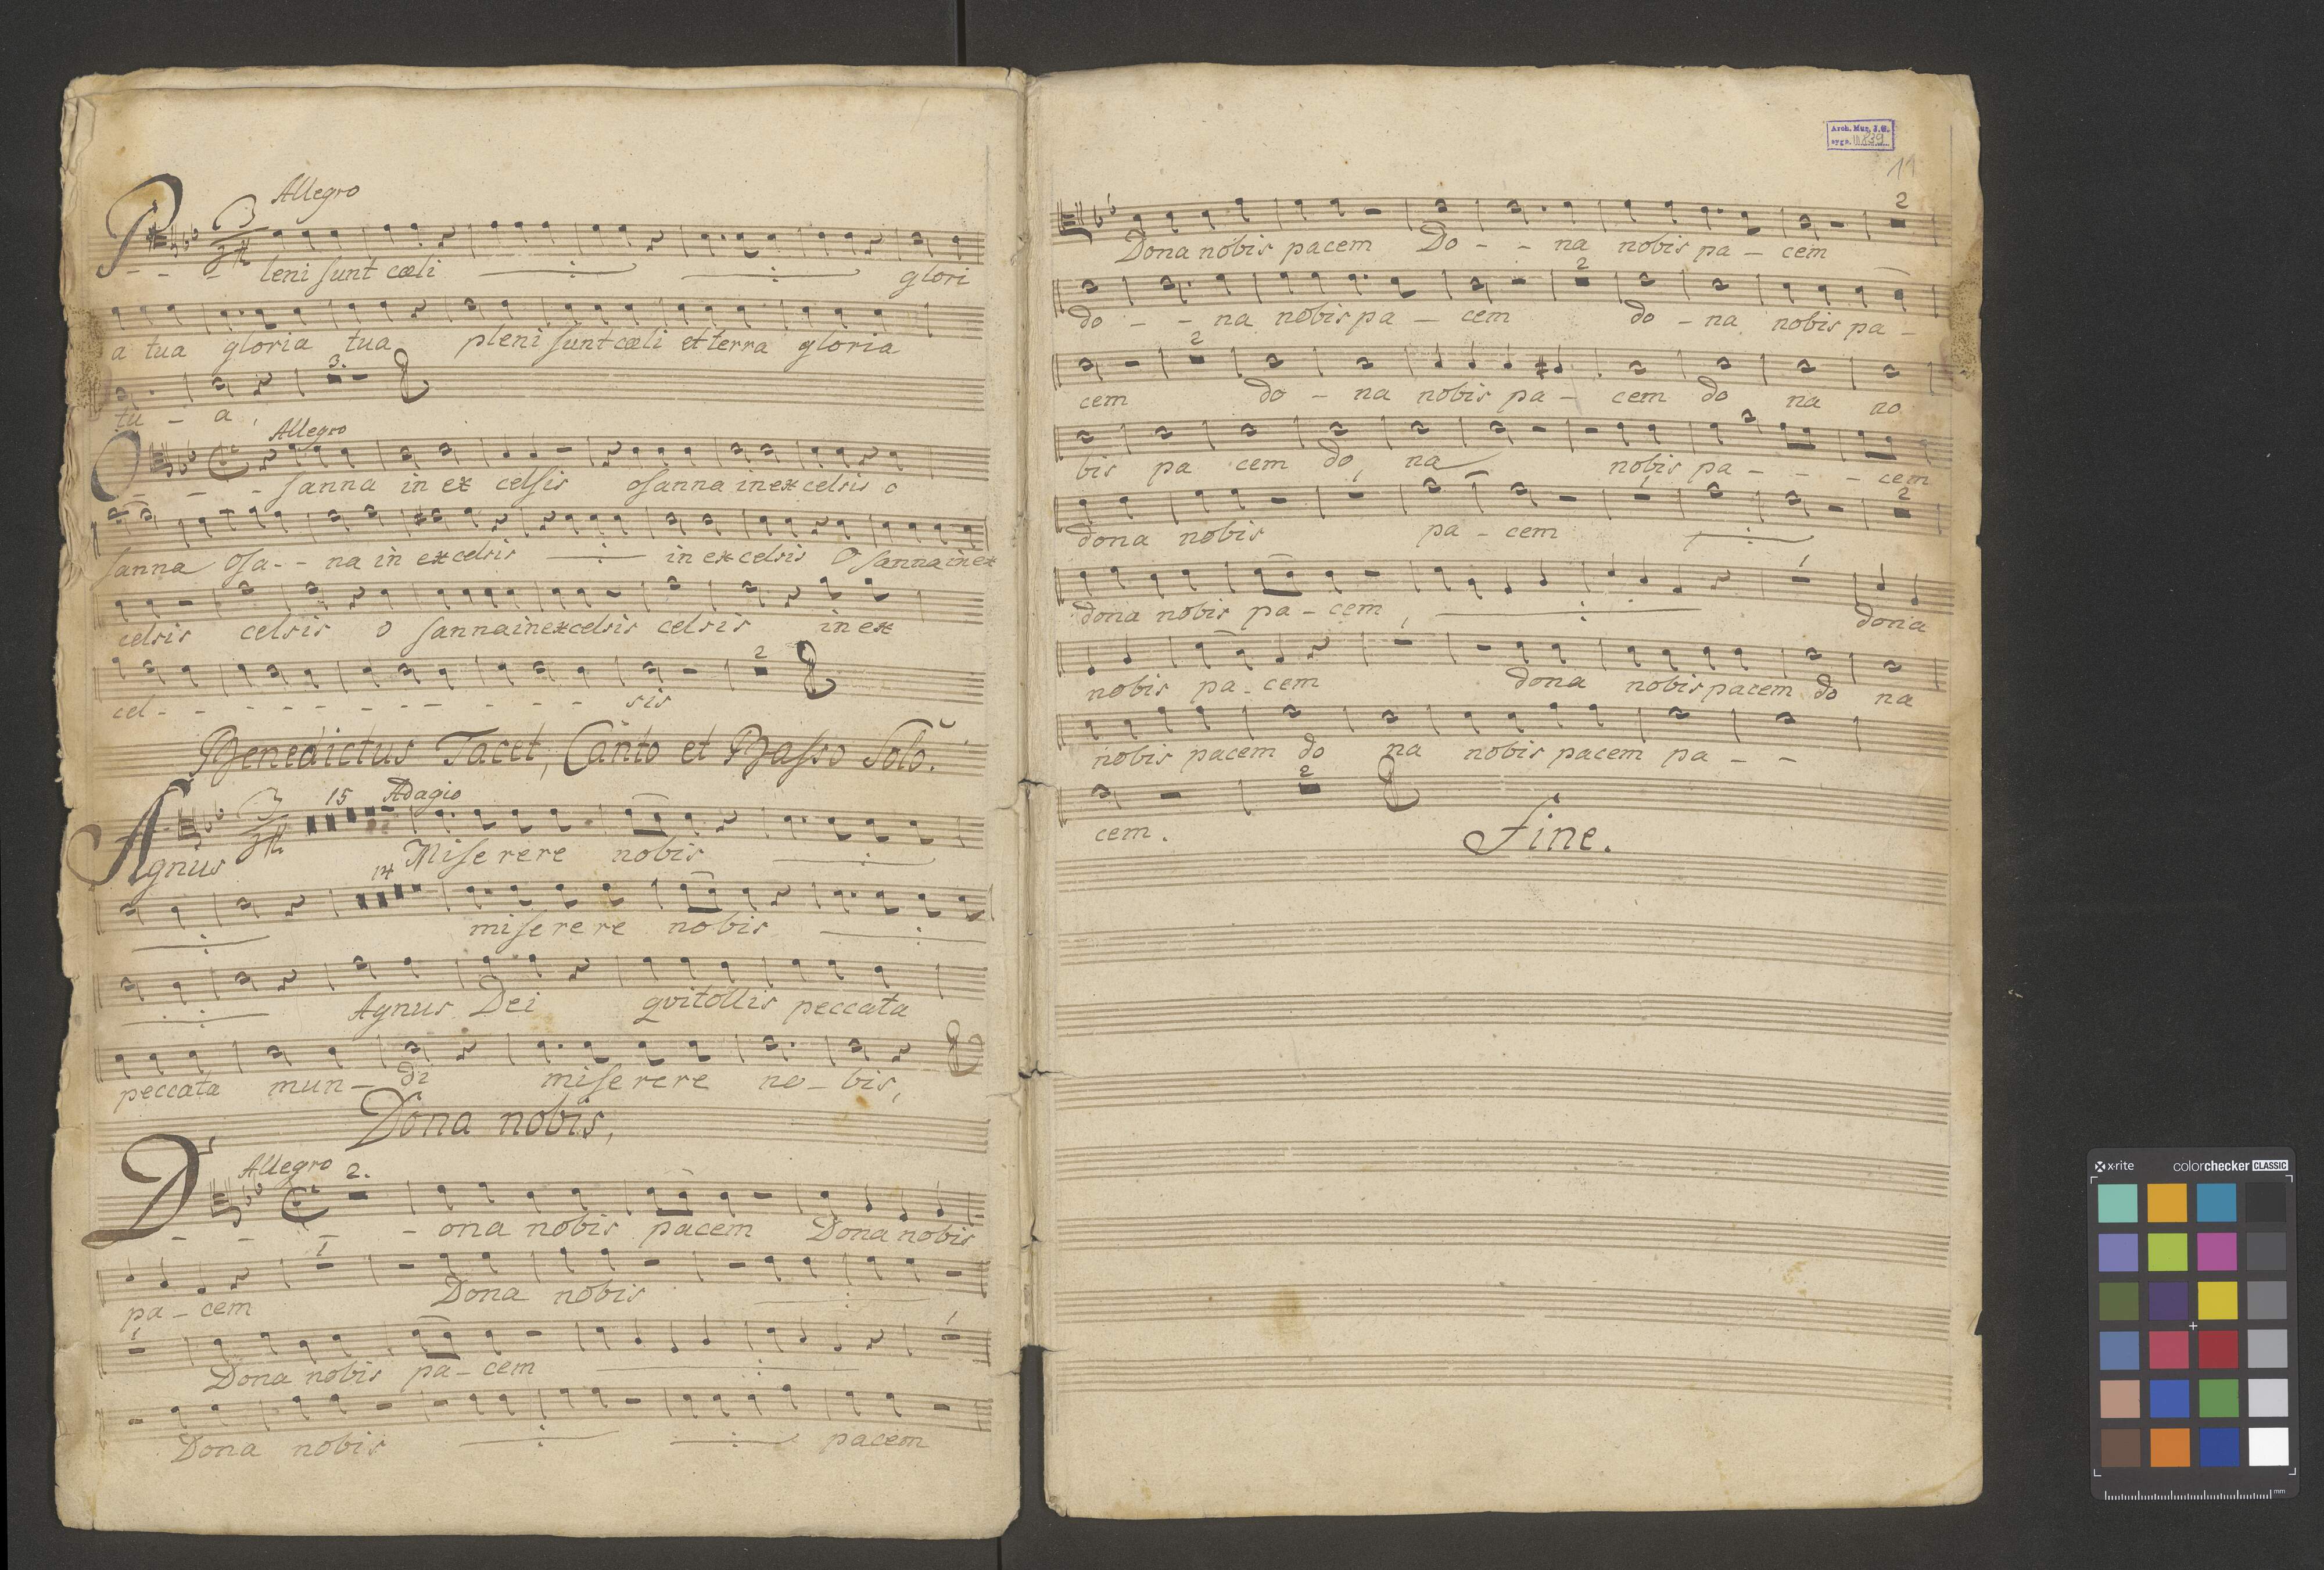 Allegro
P - - - leni sunt cæli glori
a tua gloria tua pleni sunt cæli et terra gloria
3.
tu - a,
Allegro
O - - - sanna in ex celsis osanna in excelsis o
sanna Osa - - na in excelsis in excelsis O sanna in ex
celsis celsis o sanna in excelsis celsis in ex
2
cel - - - - - - - - - - sis
Benedictus Tacet, Canto et Basso Solo.
15 Adagio
Agnus Miserere nobis
14
miserere nobis
Agnus Dei qvi tollis peccata
peccata mun - di miserere no - bis,
Dona nobis,
Allegro 2.
D - - - - ona nobis pacem Dona nobis
1
pa - cem Dona nobis
1 1
Dona nobis pa - cem
Dona nobis pacem
Arch. Muz. J.G.
sygn. III 839
11
2
Dona nobis pacem Do - - na nobis pa - cem
2
do - - na nobis pa - cem do - na nobis pa -
2
cem do - na nobis pa - cem do na no
bis pa cem do, na nobis pa - - - cem
1 1 2
dona nobis pa - cem
1
dona nobis pa - cem, dona
1
nobis pa - cem dona nobis pacem do na
nobis pacem do na nobis pacem pa - -
2
cem.
Fine.
x-rite colorchecker CLASSIC
mm